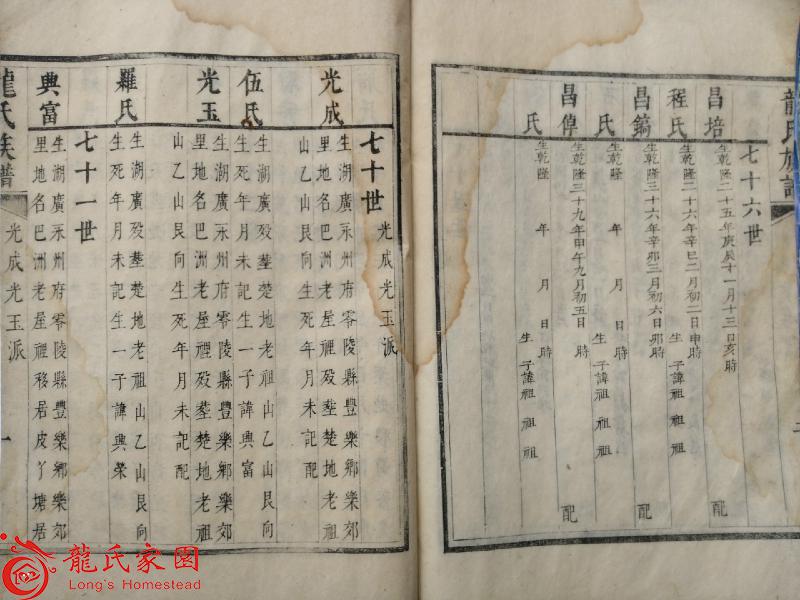 龍氏族譜
七十六世
昌培 生乾隆二十五年庚辰十一月十三日亥時 配
程氏 生乾隆二十六年辛巳二月初二日申時 生子諱祖祖祖
昌鎬 生乾隆三十六年辛卯三月初六日卯時 配
氏 生乾隆 年 月 日 時 生子諱祖祖祖
昌倬 生乾隆三十九年甲午九月初五日 時 配
氏 生乾隆 年 月 日 時 生子諱祖祖祖
七十世 光成光玉派
光成 生湖廣永州府零陵縣豐樂鄉樂郊
里地名巴洲老屋裡歿塟楚地老祖
山乙山艮向生死年月未記配
伍氏 生湖廣歿塟楚地老祖山乙山艮向
生死年月未記生一子諱興富
光玉 生湖廣永州府零陵縣豐樂鄉樂郊
里地名巴洲老屋裡歿塟楚地老祖
山乙山艮向生死年月未記配
羅氏 生湖廣歿塟楚地老祖山乙山艮向
生死年月未記生一子諱興榮
七十一世
興富 生湖廣永州府零陵縣豐樂鄉樂郊
里地名巴洲老屋裡移居皮丫塘居
龍氏族譜 光成光玉派 一
龍氏家園
Long's Homestead